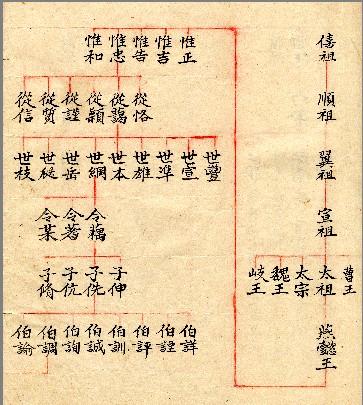 僖祖
順祖
翼祖
宣祖
曹王
太祖
太宗
魏王
岐王
燕懿王
惟正
惟吉
惟告
惟忠
惟和
從恪
從藹
從穎
從謹
從質
從信
世豐
世宣
世準
世雄
世本
世網
世岳
世
世枝
令
令耆
令某
子伸
子侁
子伉
子脩
伯詳
伯
伯評
伯訓
伯誠
伯詢
伯調
伯諭